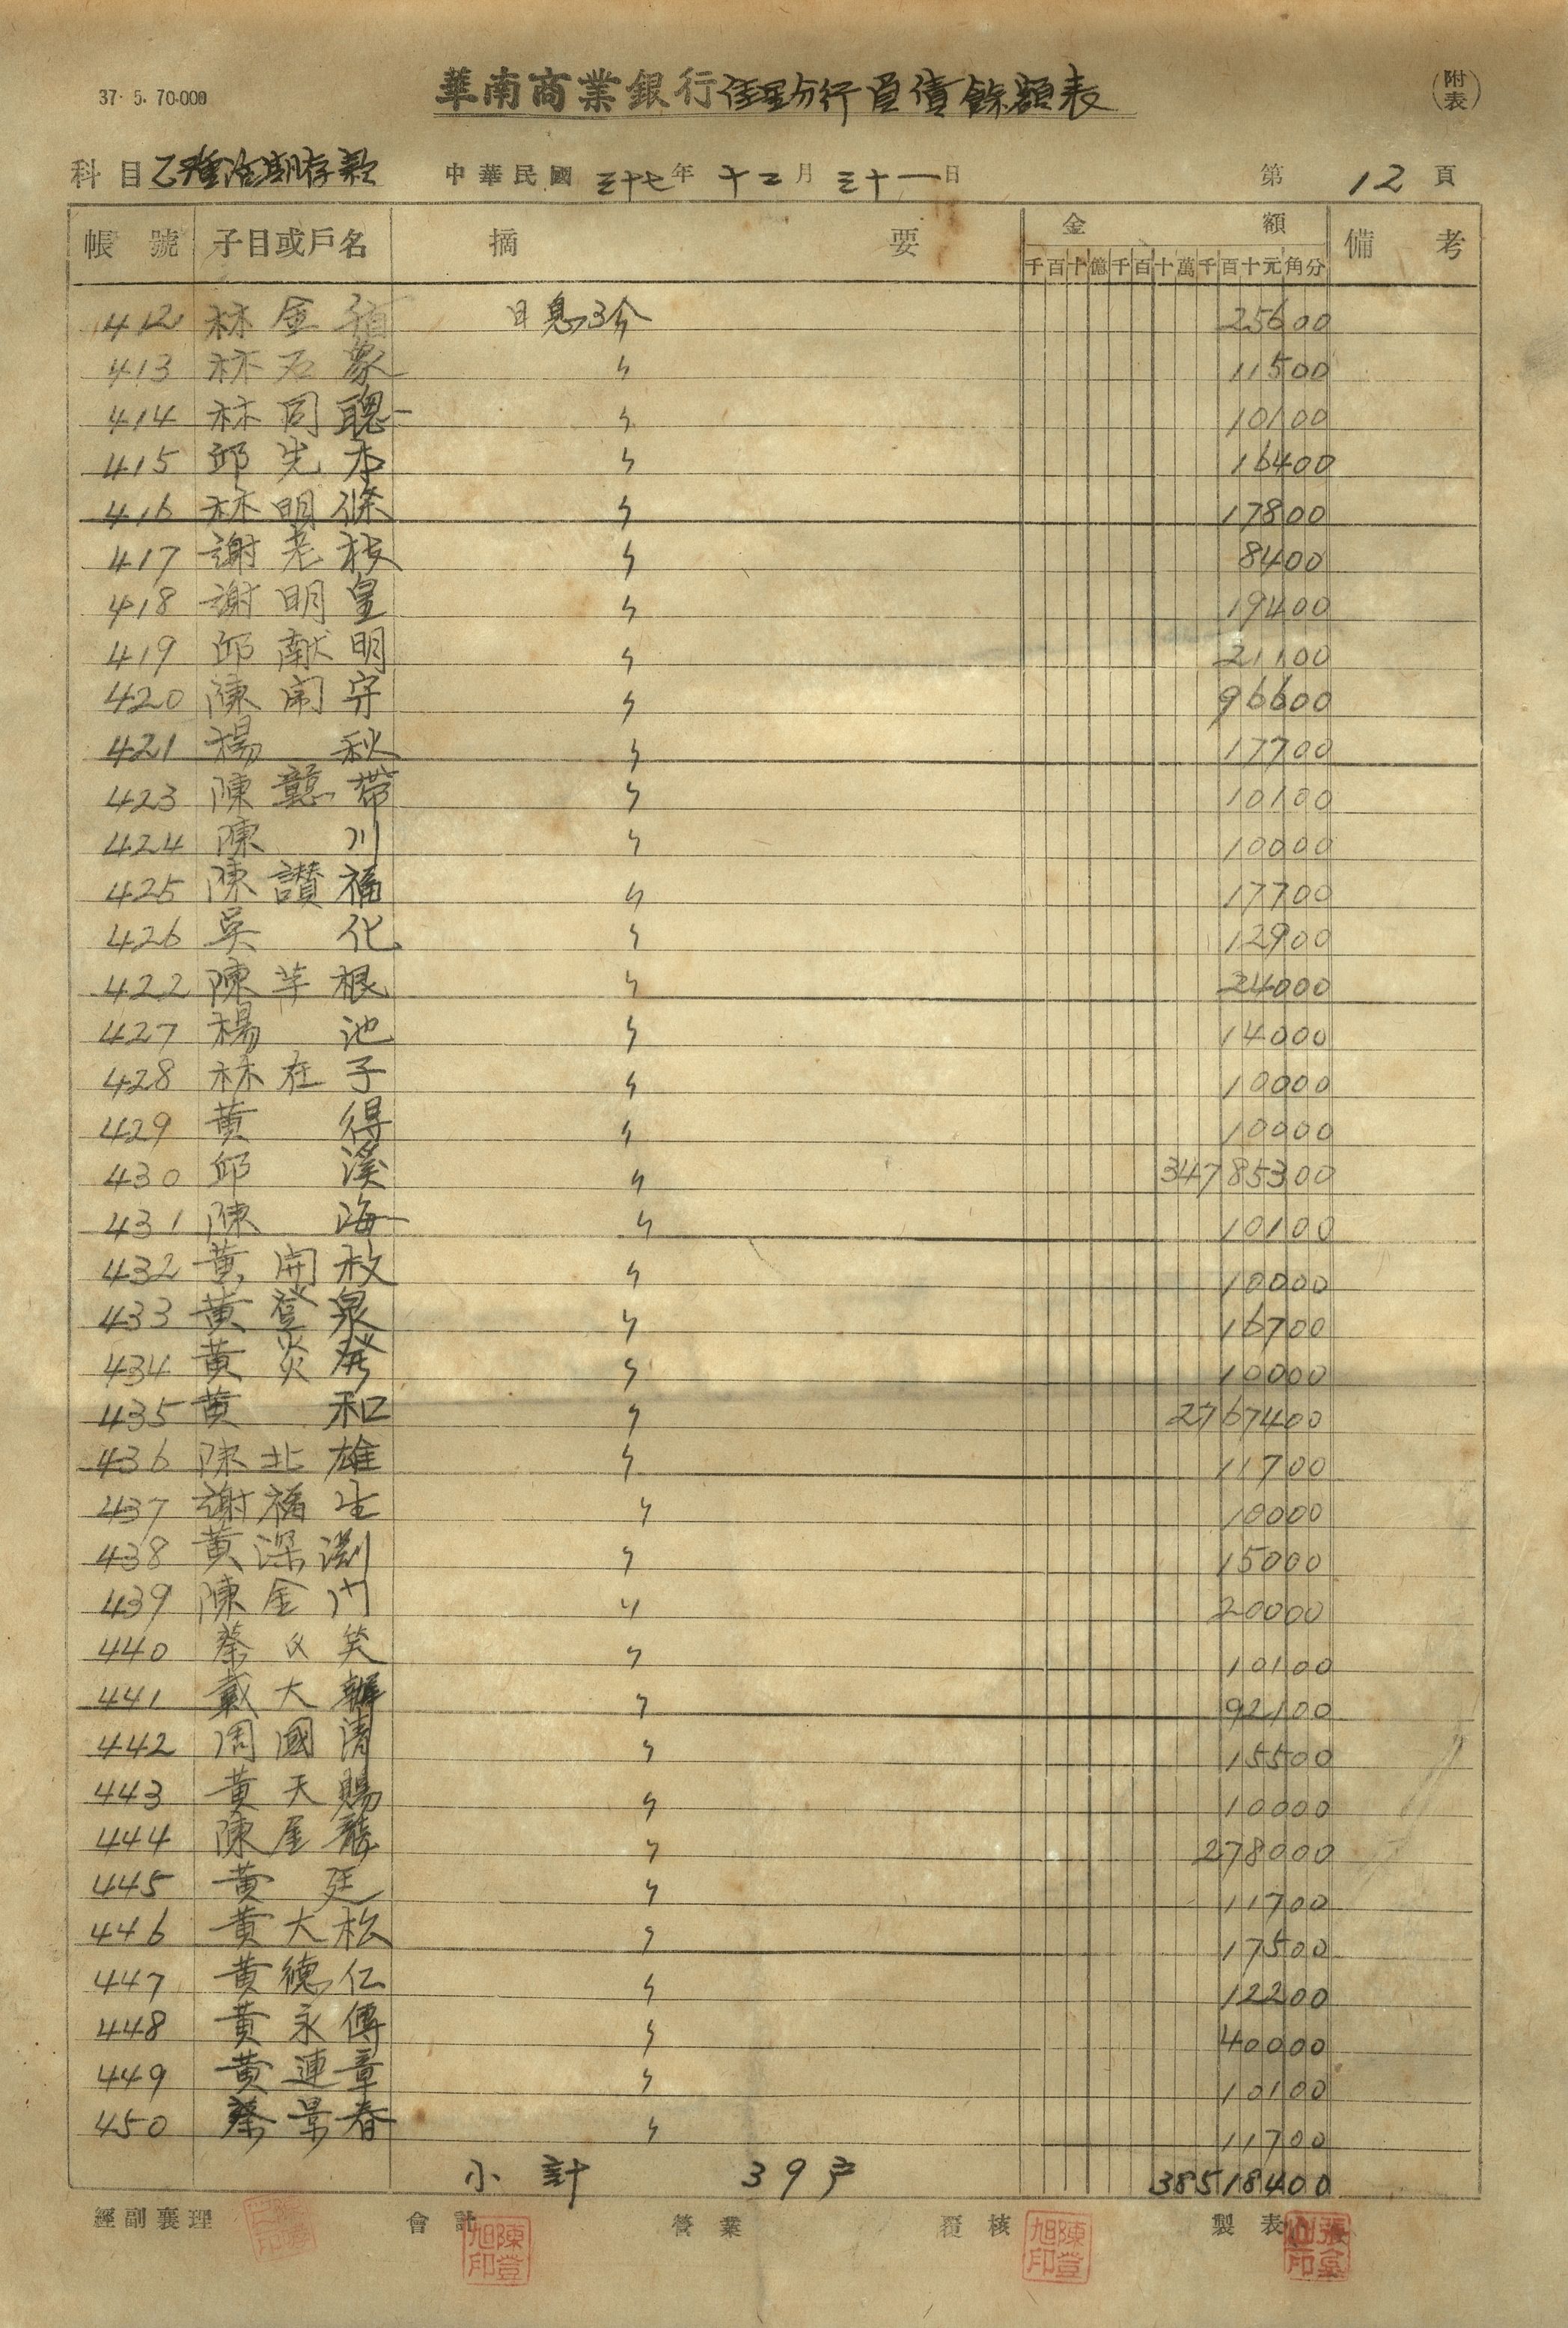 37. 5. 70.000
華南商業銀行佳里分行負債餘額表
(附表)
科目乙種活期存款 中華民國三十七年十二月三十一日 第12頁
帳號 子目或戶名 摘要 金額 備考
千百十億千百十萬千百十元角分
412 林金 日息3分 25600
413 林石象 〃 11500
414 林同聰 〃 10100
415 邱先本 〃 16400
416 林明條 〃 17800
417 謝老枝 〃 8400
418 謝明皇 〃 19400
419 邱献明 〃 21100
420 陳闹守 〃 96600
421 楊秋 〃 17700
423 陳憨帶 〃 10100
424 陳川 〃 10000
425 陳讃福 〃 17700
426 吳化 〃 12900
422 陳芋根 〃 24000
427 楊池 〃 14000
428 林在子 〃 10000
429 黃得 〃 10000
430 邱溪 〃 34785300
431 陳海 〃 10100
432 黃開枚 〃 10000
433 黃登泉 〃 16700
434 黃炎發 〃 10000
435 黃和 〃 2767400
436 陳北雄 〃 11700
437 謝福生 〃 10000
438 黃深渕 〃 15000
439 陳金門 〃 20000
440 蔡父笑 〃 10100
441 戴大 〃 92100
442 周國清 〃 15500
443 黃天賜 〃 10000
444 陳屋龍 〃 278000
445 黃廷 〃 11700
446 黃大松 〃 17500
447 黃德仁 〃 12200
448 黃永傳 〃 40000
449 黃連章 〃 10100
450 蔡景春 〃 11700
小計 39户 38518400
經副襄理 會計 營業 覆核 製表
陳登旭印 陳登旭印